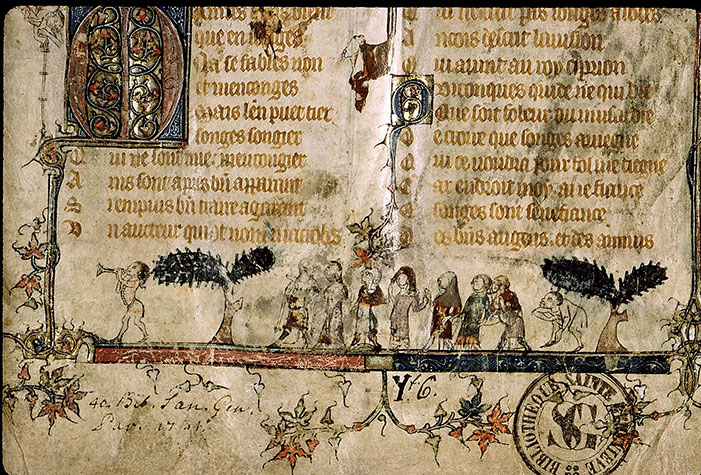 que en songes
Na se fables non
et menconges
Mais len puet tiex
songes songier
Qui ne sont mie mencongier
Ains sont apres bn apparant
Si en puis bn traire a garant
Un aucteur qui ot non macrobes
Qui ne tint pas songes a lobes
Ancois descrit la vision
Qui avint au roy ciprion
Quiconques cuide ne qui die
Que soit folour ou musardie
De croire que songes aviegne
Qui ce voudra pour fol me tiegne
Car endroit moy ai ie fiance
Que songes sont senefiance
Des bns augens. et des anuis
Bib. San. Gen.
Par. 1731.
Y f. 6.
BIBLIOTHEQUE SAINTE GENEVIEVE
SG